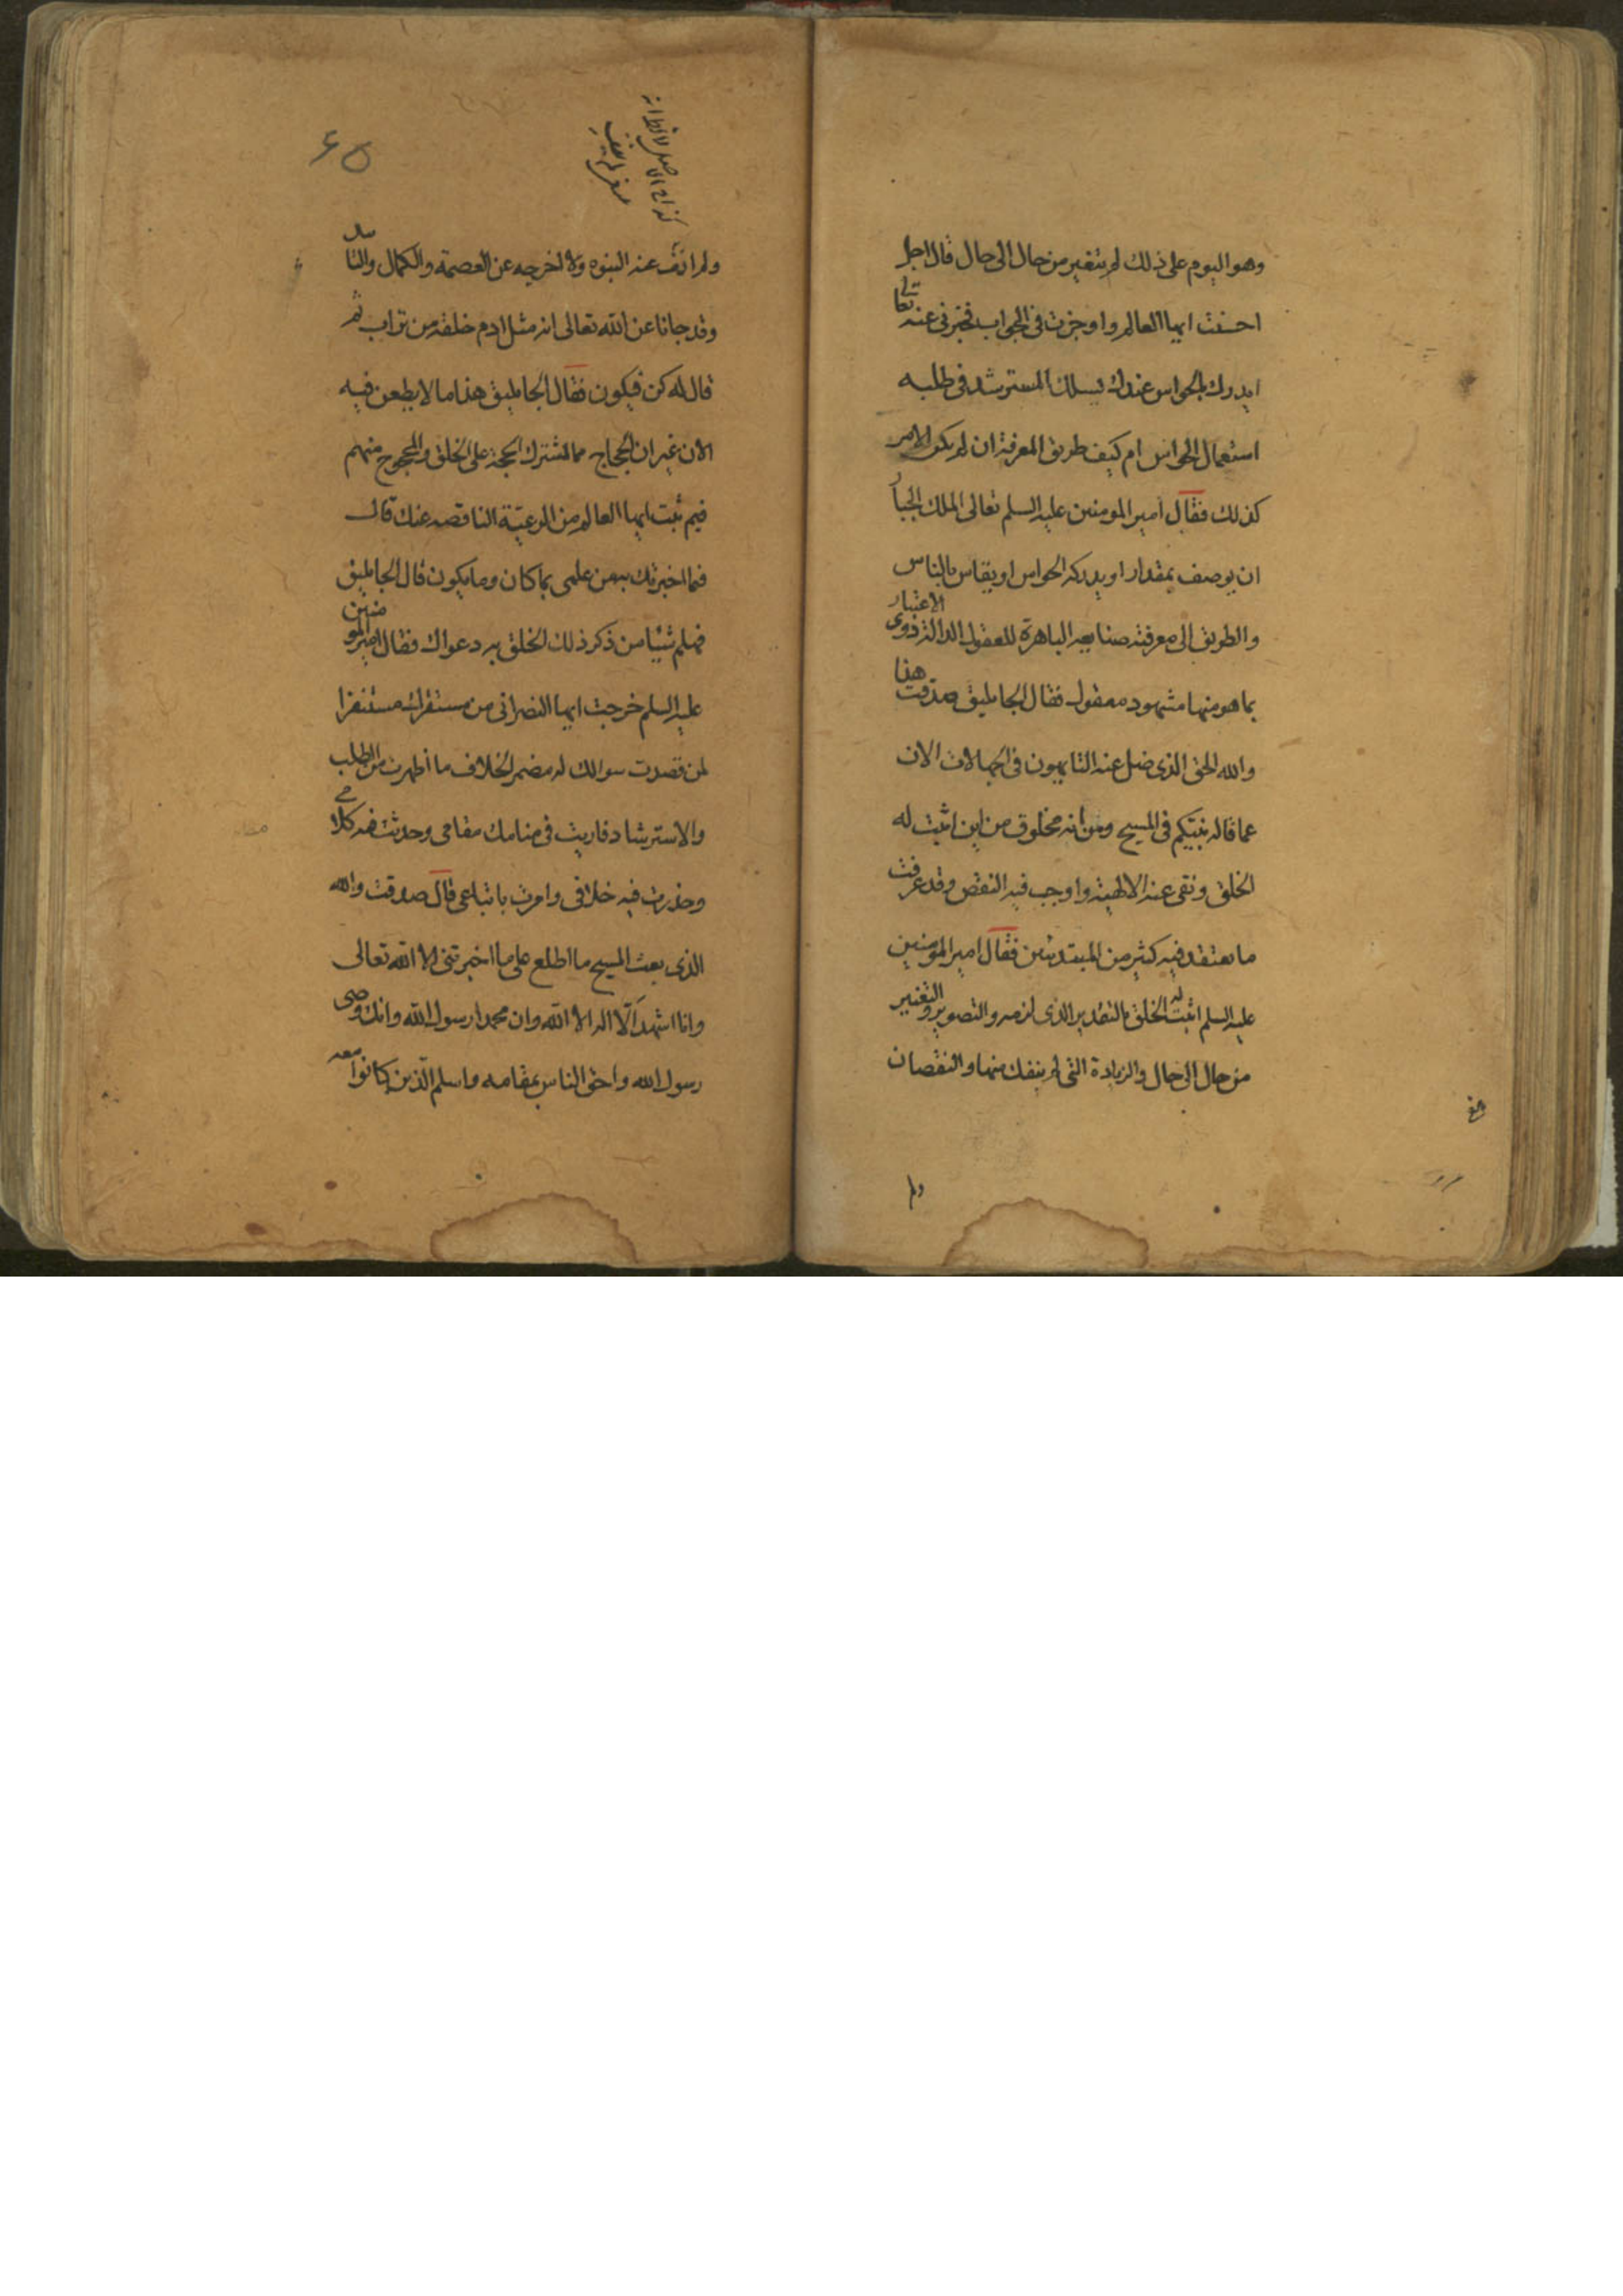 وهو اليوم على ذلك لم يتغير من حال الى حال قال اجل
احسنت ايها العالم واوجزت في الجواب فخبرني عنه تعالى
ايدرك بالحواس عندك ليسلك المسترشد في طلبه
استعمال الحواس ام كيف طريق المعرفة ان لم يكن الامر
كذلك فقال امير المومنين عليه السلم تعالى الملك الجبار
ان يوصف بمقدار او يدركه الحواس او يقاس بالناس
والطريق الى معرفته صنايعه الباهرة للعقول الدالة ذوى الاعتبار
بما هو منها مشهود معقول فقال الجاثليق صدقت هذا
والله الحق الذى ضل عنه التايهون في الجهالات الان
عما قاله نبيكم في المسيح ومن انه مخلوق من اين اثبت له
الخلق ونفى عنه الالهية واوجب فيه النقص وقد عرفت
ما يعتقد فيه كثير من المبتدئين فقال امير المومنين
عليه السلم اثبت له الخلق بالتقدير الذى لزمه والتصوير والتغيير
من حال الى حال والزيادة التى لم ينفك منها والنقصان
ولم
ولم انف عنه النبوه ولا اخرجه عن العصمة والكمال والتا
وقد جانا عن الله تعالى انه مثل ادم خلقه من تراب ثم
قال له كن فيكون فقال الجاثليق هذا ما لا يطعن فيه
الان غير ان الحجاج مما تشترك الحجة على الخلق والمحجوج منهم
فبم ثبت ايها العالم من الرعية الناقصه عنك قال
فيما اخبرتك به من علمى بما كان وما يكون قال الجاثليق
فهلم شيئا من ذكر ذلك الخلق به دعواك فقال امير المومنين
عليه السلم خرجت ايها النصرانى من مستقرك مستنفزا
لمن قصدت سوالك له مضمر الخلاف ما اظهرت من الطلب
والاسترشاد فاريت في منامك مقامى وحدثت فيه كلامى
وحذرت فيه خلافى وامرت باتباعى قال صدقت والله
الذى بعث المسيح ما اطلع على ما اخبرتنى الا الله تعالى
وانا اشهد الا اله الا الله وان محمدا رسول الله وانك وصى
رسول الله واحق الناس بمقامه واسلم الذين كانوا معه